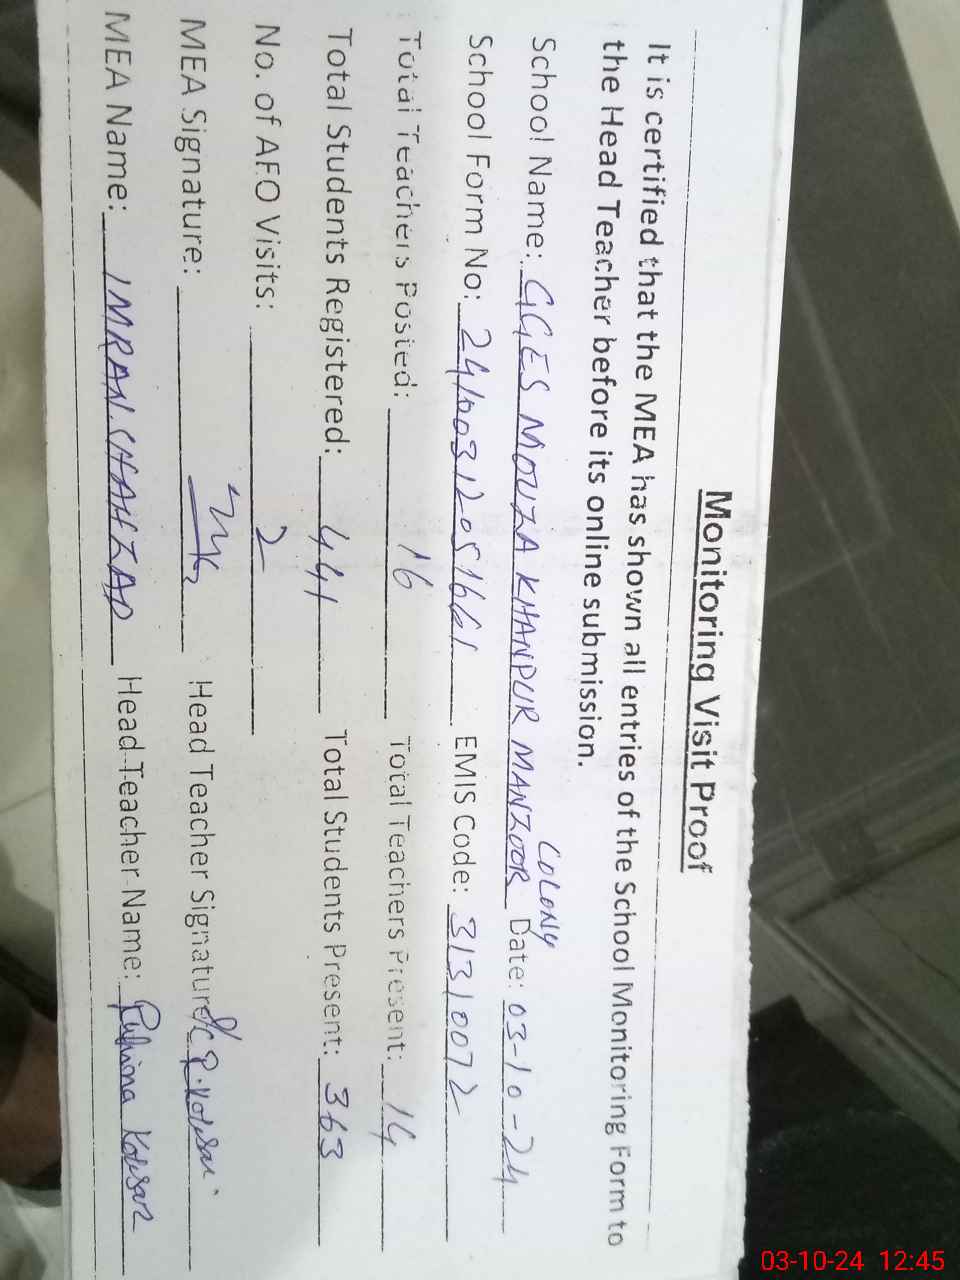 Monitoring Visit Proof
It is certified that the MEA has shown all entries of the School Monitoring Form to
the Head Teacher before its online submission.
School Name: GGES MOUZA KHANPUR MANZOOR COLONY Date: 03-10-24
School Form No: 24100312051661 EMIS Code: 31310072
Total Teachers Posted: 16 Total Teachers Present: 14
Total Students Registered: 441 Total Students Present: 363
No. of AEO Visits: 2
MEA Signature: Head Teacher Signature
MEA Name: IMRAN SHAHZAD Head Teacher Name: Rubina Kousar
03-10-24 12:45